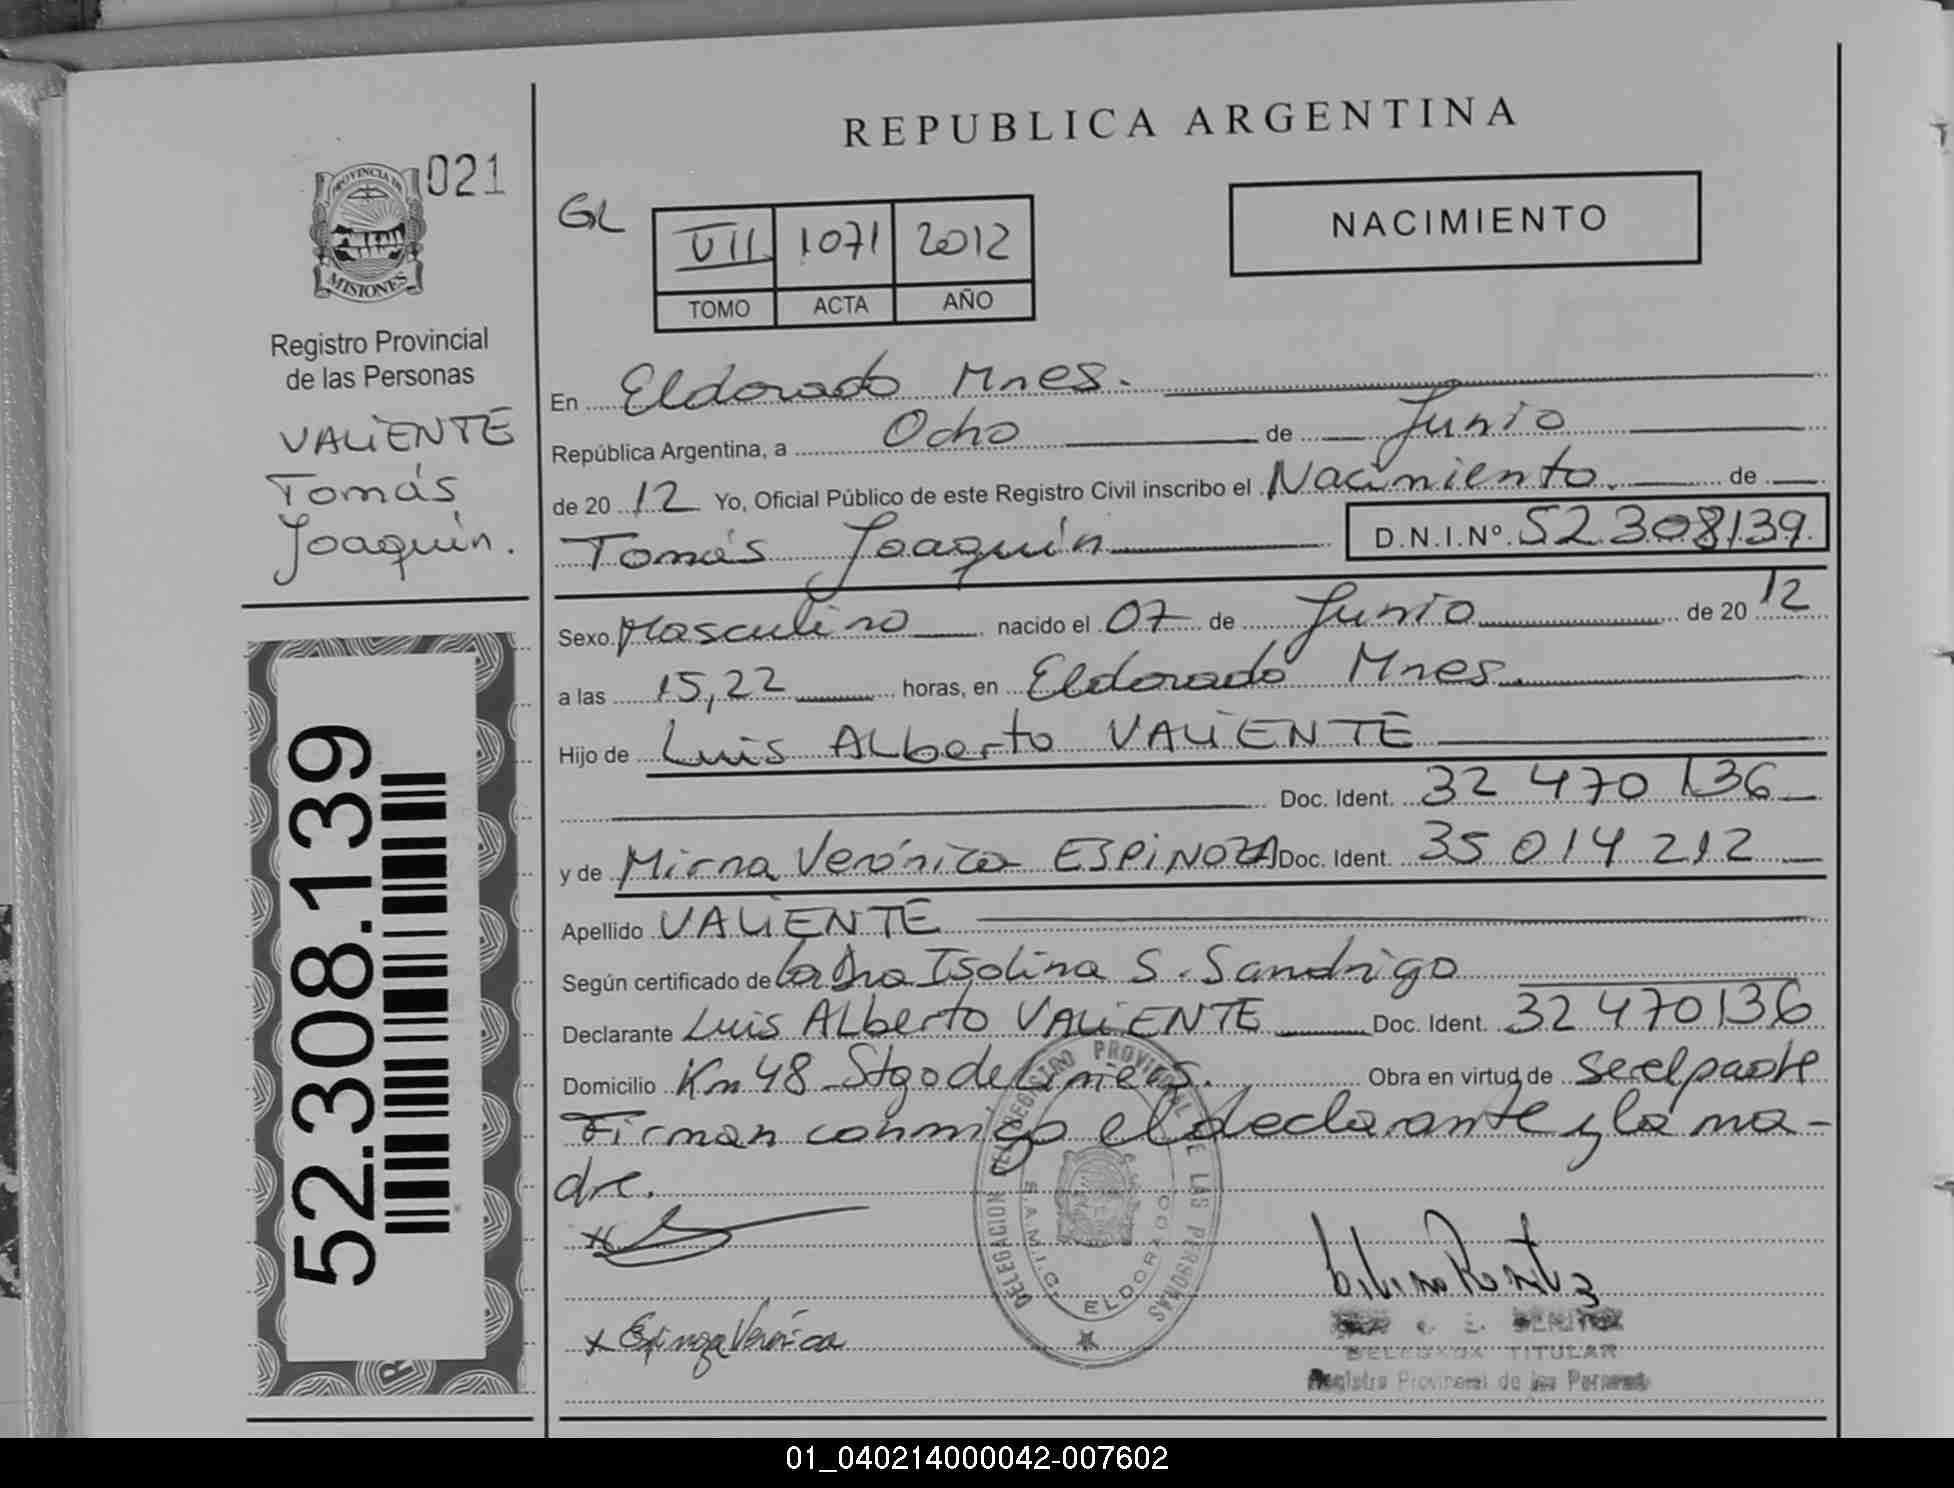 021
PROVINCIA DE
MISIONES
Registro Provincial
de las Personas
VALIENTE
Tomás
Joaquín.
52.308.139
REPUBLICA ARGENTINA
GL
VII 1071 2012
TOMO ACTA AÑO
NACIMIENTO
En Eldorado Mnes.
República Argentina, a Ocho de Junio
de 2012 Yo, Oficial Público de este Registro Civil inscribo el Nacimiento de
Tomás Joaquín D.N.I.Nº. 52.308139.
Sexo Masculino nacido el 07 de Junio de 2012
a las 15,22 horas, en Eldorado Mnes.
Hijo de Luis ALberto VALIENTE
Doc. Ident. 32 470 136
y de Mirna Verónica ESPINOZA Doc. Ident. 35 014 212
Apellido VALIENTE
Según certificado de la Dra Isolina S. Sandrigo
Declarante Luis ALberto VALIENTE Doc. Ident. 32 470136
Domicilio Km 48 Stgo de Liniers. Obra en virtud de ser el padre
Firman conmigo el declarante y la ma-
dre.
DELEGACION DEL REGISTRO PROVINCIAL DE LAS PERSONAS
ELDORADO
x Espinoza Verónica
TITULAR
Registro Provincial de las Personas
01_040214000042-007602